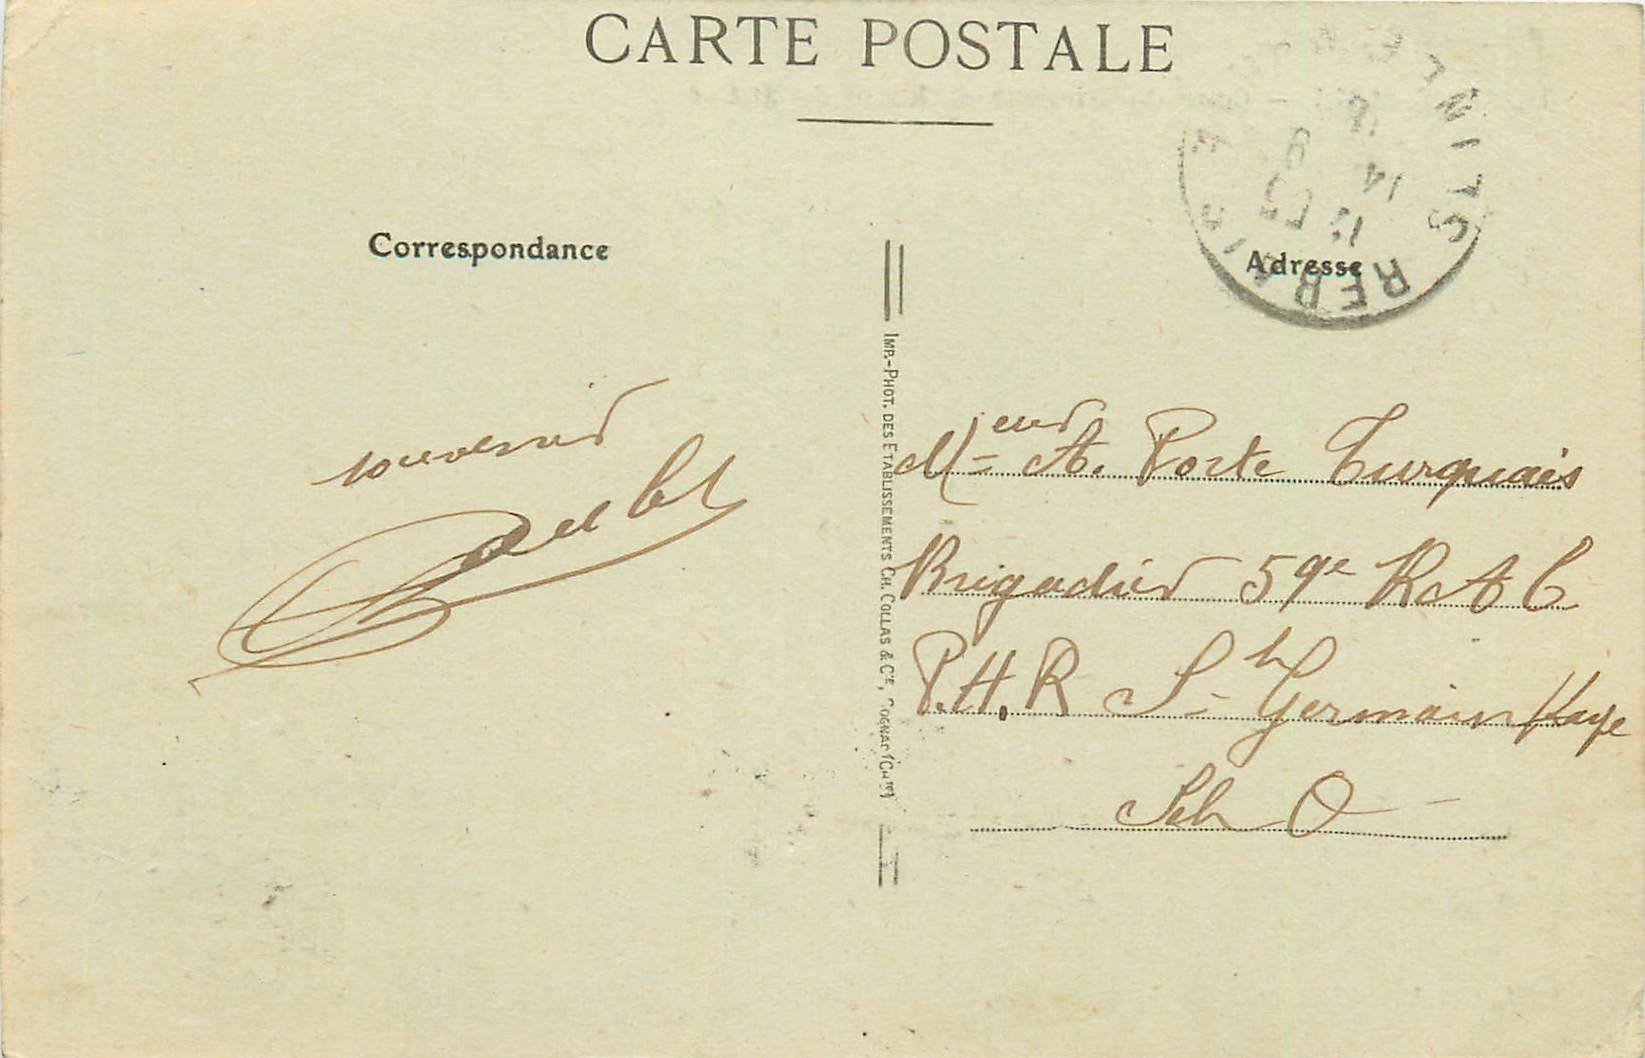 CARTE POSTALE
Correspondance
Adresse
REBAIS
souvenir
IMP.-PHOT. DES ETABLISSEMENTS CH. COLLAS & Cie, COGNAC (Chte)
Mieur A. Porte Turquais
Brigadier 59e RAC
P.H.R St Germain Haye
S et O